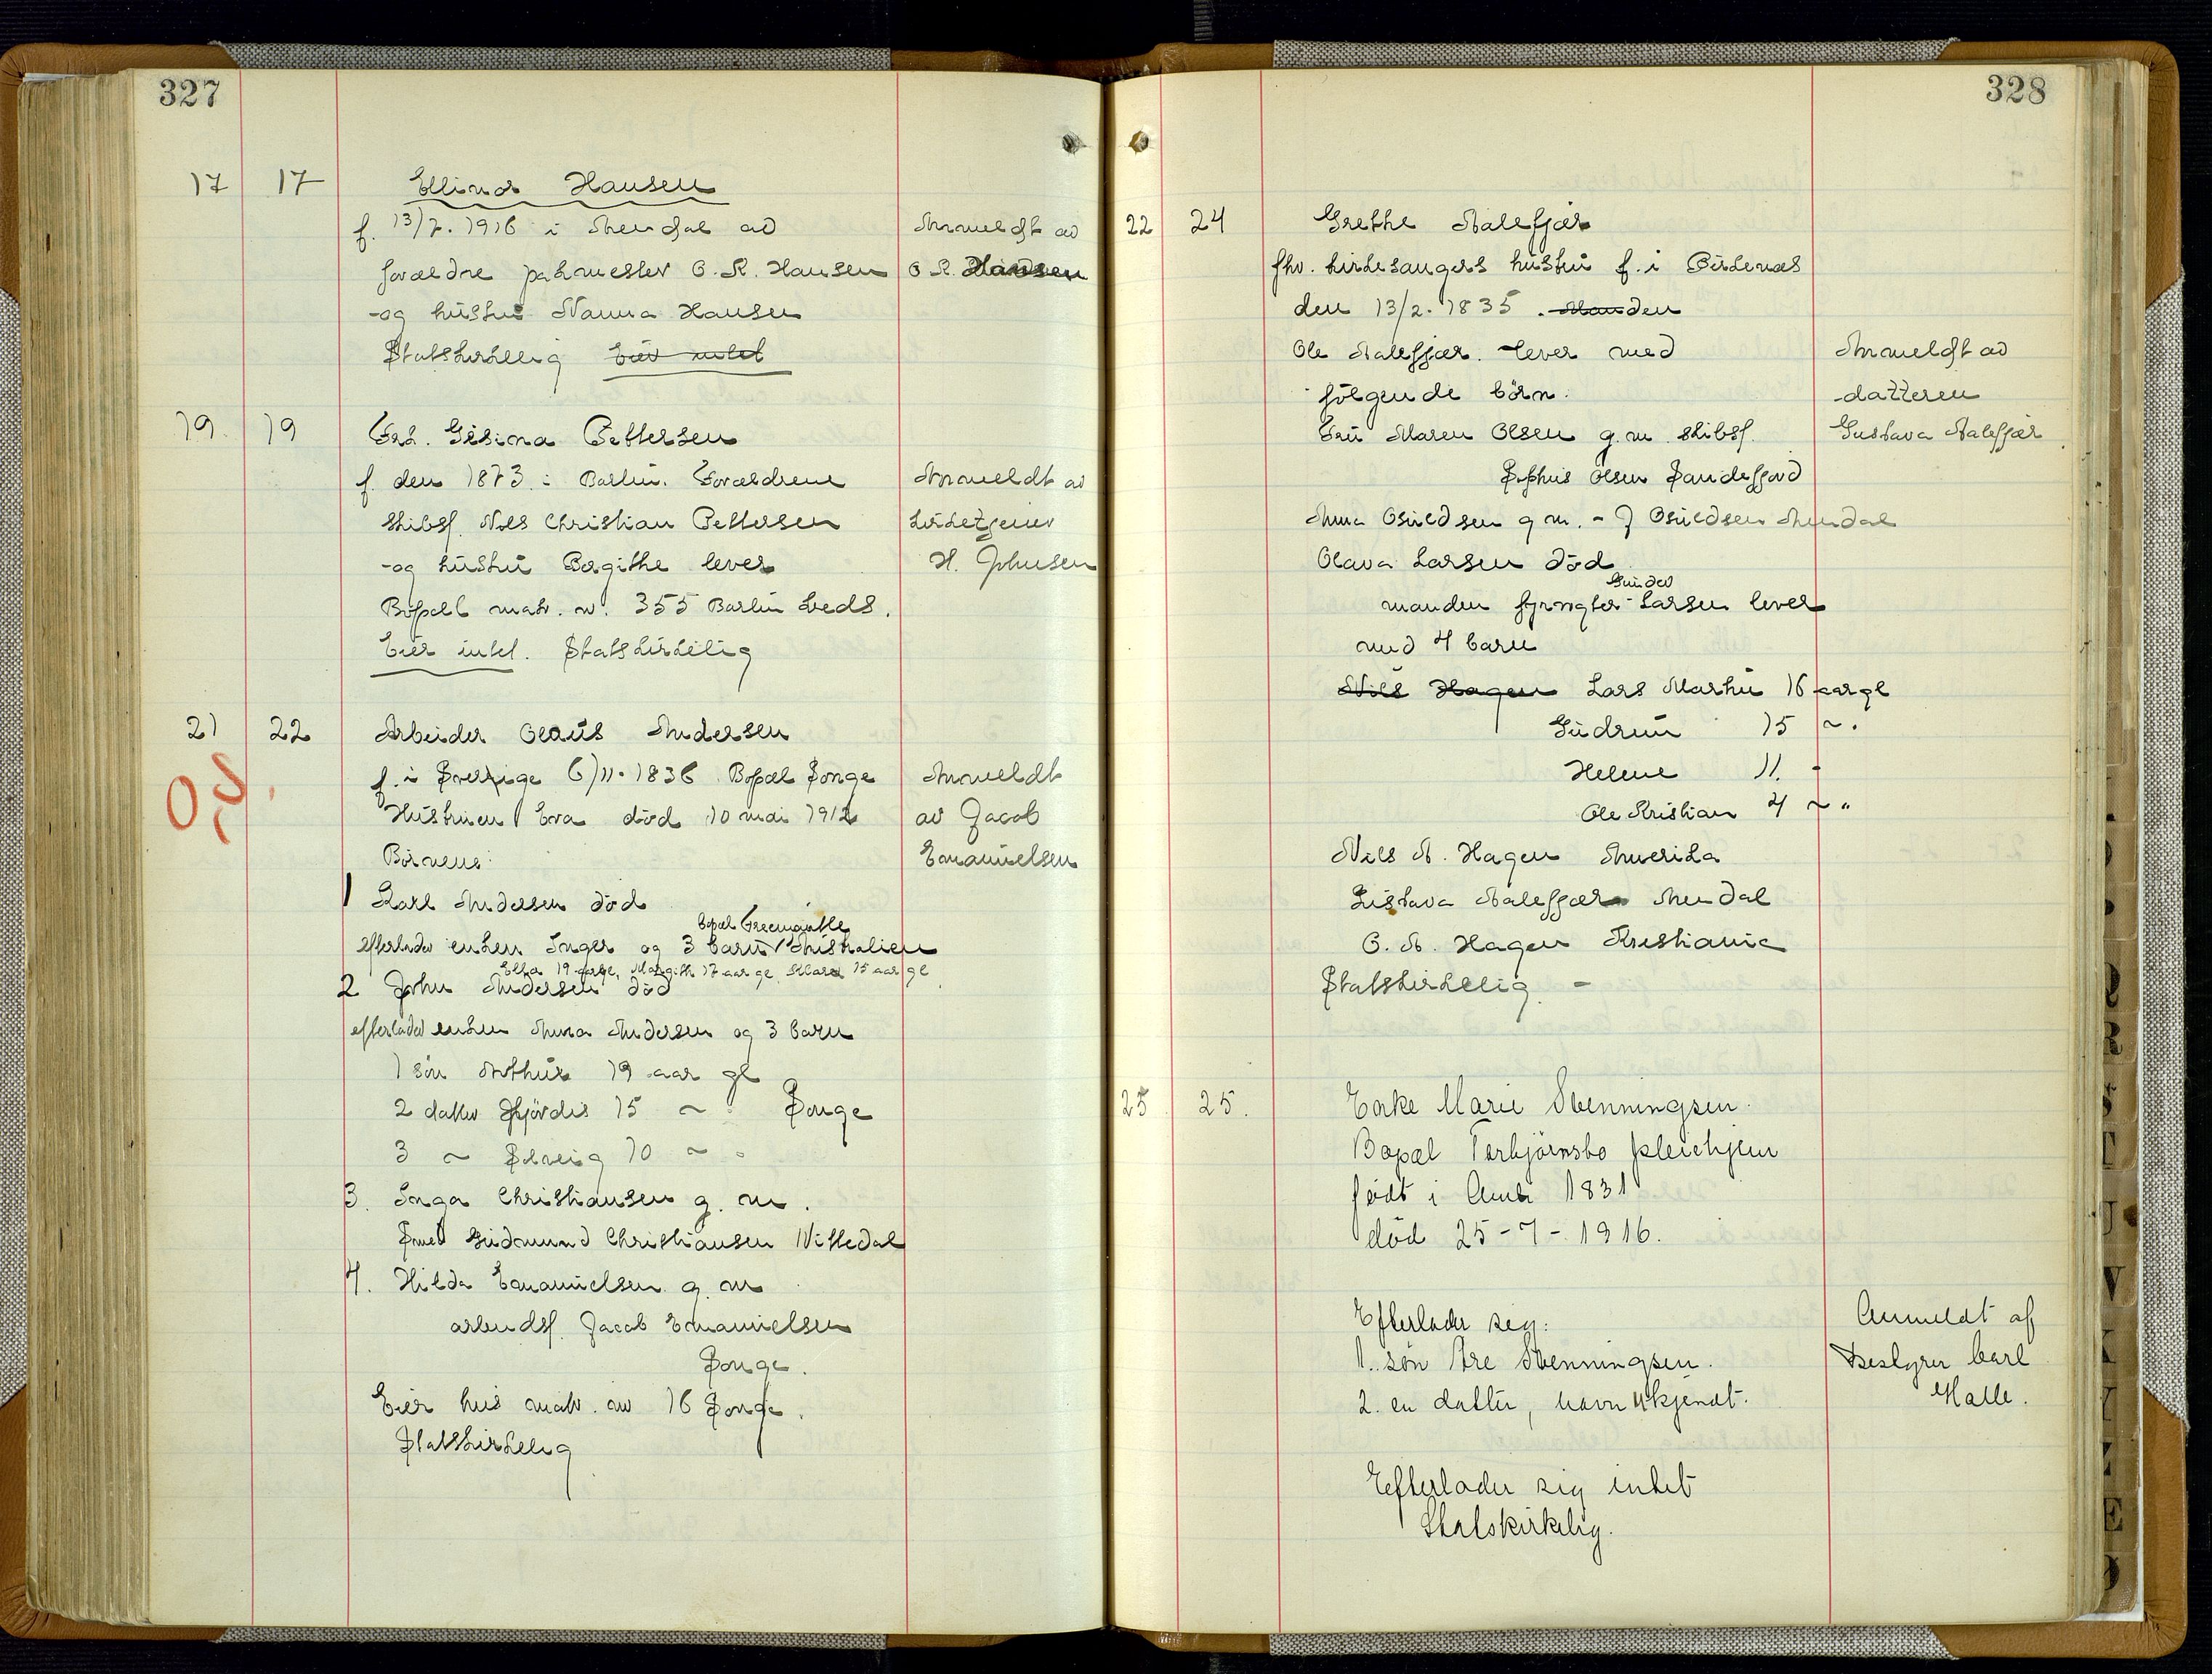 327
17 17 Ellinor Hansen
f. 13/7. 1916 i Arendal av Anmeldt av
forældre pakmester O. K. Hansen O K Hansen
og hustru Nanna Hansen
Statskirkelig Eier intet
19. 19 Frk. Gesina Pettersen
f. den 1873 i Barbu. Forældrene Anmeldt av
skibsf. Nils Christian Pettersen kirketjener
og hustru Bergithe lever H. Johnsen
Bopæl matr. nr. 355 Barbu
Eier intet. Statskirkelig
21 22 Arbeider Olaus Andersen
f. i Sverige 6/11. 1836 Bopæl Songe Anmeldt
Hustruen Eva død 10 mai 1912 av Jacob
Børnene: Emanuelsen
1 Karl Andersen død
bopæl Freemantle
efterlader enken Inger og 3 barn Australien
Ella 19 aar gl, Margith 17 aar gl. 15 aar gl
2 John Andersen død
efterlader enken Anna Andersen og 3 barn
1 søn Arthur 19 aar gl
2 datter Hjørdis 15 ~ " Songe
3 ~ Solveig 10 ~ "
3. Inga Christiansen g. m.
Smed Gudmund Christiansen Nittedal
4. Hilda Emanuelsen g. m
arbeidsf. Jacob Emanuelsen
Songe.
Eier hus matr. nr 16 Songe.
Statskirkelig
328
22 24 Grethe Aalefjær
fhv. kirkesangers hustru f. i Birkenæs
den 13/2. 1835. Manden
Ole Aalefjær. lever med Anmeldt av
følgende børn: datteren
Fru Maren Olsen g.m. skibsf. Gustava Aalefjær
Sophus Olsen Sandefjord
Anna Osuldsen g m. - J Osuldsen Arendal
Olava Larsen død
Gunder
manden fyrvogter Larsen lever
med 4 barn
Nils Hagen Lars Markus 16 aar gl
Gudrun 15 ~ "
Helene 11. "
Ole Kristian 4 ~ "
Nils A. Hagen Amerika
Gustava Aalefjær Arendal
O. A. Hagen Kristiania
Statskirkelig. -
25. 25. Enke Marie Svenningsen.
Bopæl Torbjørnsbo pleiehjem
født i Amli 1831
død 25-7-1916.
Efterlader sig: Anmeldt af
1. søn Are Svenningsen. Bestyrer Carl
2. en datter, navn ukjendt. Halle.
Efterlader sig intet
Statskirkelig.